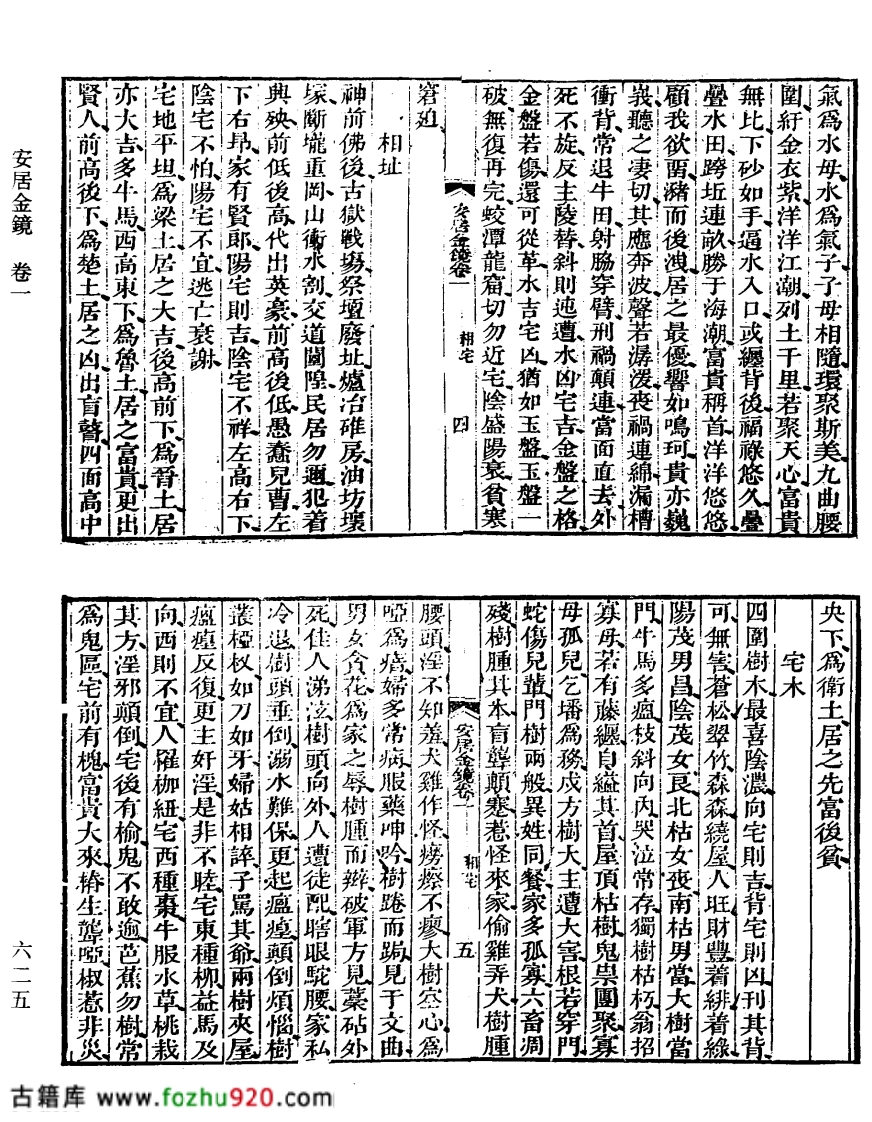 氣爲水母水爲氣子子母相隨環聚斯美九曲腰
圍紆金衣紫洋洋江潮列土千里若聚天心富貴
無比下砂如手逼水入口或纏背後福祿悠久疊
疊水田跨坵連畝勝于海潮富貴稱首洋洋悠悠
顧我欲畱瀦而後洩居之最優響如鳴珂貴亦巍
峩聽之凄切其應奔波聲若潺湲喪禍連綿漏槽
衝背常退牛田射脇穿臂刑禍顛連當面直去外
死不旋反主陵替斜則迍遭水凶宅吉金盤之格
金盤若傷還可從革水吉宅凶猶如玉盤玉盤一
破無復再完蛟潭龍窟切勿近宅陰盛陽衰貧寒
安居金鏡卷一 相宅 四
窘迫
相址
神前佛後古獄戰塲祭壇廢址爐冶碓房油坊壞
塚斷壠重岡山衝水割交道闤隍民居勿邇犯着
典殃前低後高代出英豪前高後低愚蠢兒曹左
下右昂家有賢郞陽宅則吉陰宅不祥左高右下
陰宅不怕陽宅不宜逃亡衰謝
宅地平坦爲梁土居之大吉後高前下爲晉土居
亦大吉多牛馬西高東下爲魯土居之富貴更出
賢人前高後下爲楚土居之凶出盲瞽四面高中
安居金鏡 卷一
央下爲衛土居之先富後貧
宅木
四圍樹木最喜陰濃向宅則吉背宅則凶刊其背
可無害蒼松翠竹森森繞屋人旺財豐着緋着綠
陽茂男昌陰茂女良北枯女喪南枯男當大樹當
門牛馬多瘟枝斜向內哭泣常存獨樹枯枒翁招
寡母若有藤纏自縊其首屋頂枯樹鬼祟團聚寡
母孤兒乞墦爲務戍方樹大主遭大害根若穿門
蛇傷兒輩門樹兩般異姓同餐家多孤寡六畜凋
殘樹腫其本盲聾顛蹇惹怪來家偷雞弄犬樹腫
安居金鏡卷一 相宅 五
腰頭淫不知羞犬雞作怪癆瘵不瘳大樹空心爲
啞爲瘖婦多常病服藥呻吟樹踡而跼見于文曲
男女貪花爲家之辱樹腫而辦破軍方見藁砧外
死佳人涕泫樹頭向外人遭徒配瞎眼駝腰家私
冷退樹頭垂倒溺水難保更起瘟㾮顛倒煩惱樹
叢椏杈如刀如牙婦姑相誶子罵其爺兩樹夾屋
瘟㾮反復更主奸淫是非不睦宅東種柳益馬及
向西則不宜人罹枷紐宅西種棗牛服水草桃栽
其方淫邪顛倒宅後有榆鬼不敢逾芭蕉勿樹常
爲鬼區宅前有槐富貴大來椿生聾啞椒惹非災
六二五
古籍库 www.fozhu920.com